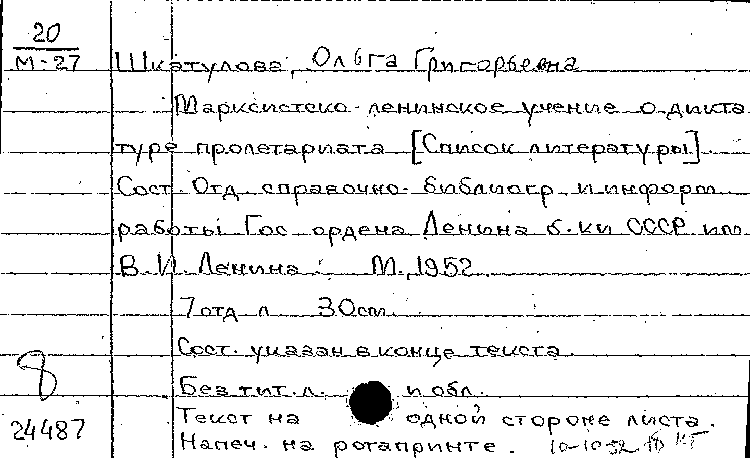 20
М-27
Шкатулова, Ольга Григорьевна
Марксистско-ленинское учение о дикта
туре пролетариата [Список литературы].
Сост. Отд. справочно-библиогр. и информ.
работы Гос. ордена Ленина б-ки СССР им
В.И. Ленина. М., 1952.
7 отд. л. 30 см.
Сост. указан в конце текста.
Без тит. л. и обл.
Текст на одной стороне листа.
Напеч. на ротапринте. 10-10-52
8
24487